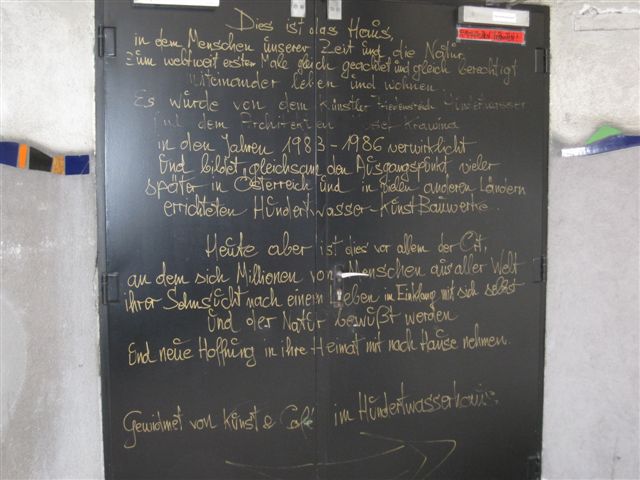 Dies ist das Haus,
in dem Menschen unserer Zeit und die Natur
zum weltweit ersten Male gleich geachtet und gleich berechtigt
Miteinander leben und wohnen.
Es wurde von dem Künstler Hundertwasser
mit dem Architekten Krawina
in den Jahren 1983-1986 verwirklicht
Und bildet gleichsam den Ausgangspunkt vieler
später in Österreich und in vielen anderen Ländern
errichteten Hundertwasser-Kunst Bauwerke.
Heute aber ist dies vor allem der Ort,
an dem sich Millionen von Menschen aus aller Welt
ihrer Sehnsucht nach einem Leben in Einklang mit sich selbst
und der Natur bewußt werden
Und neue Hoffnung in ihre Heimat mit nach Hause nehmen.
Gewidmet von Kunst & Café im Hundertwasserhaus.